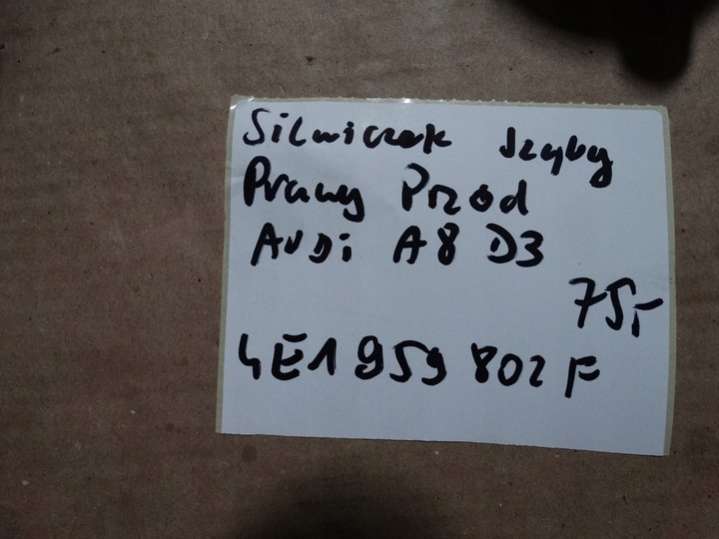 Silniczek szyby
Prawy Przód
AUDi A8 D3
75,-
4E1 959 802 F